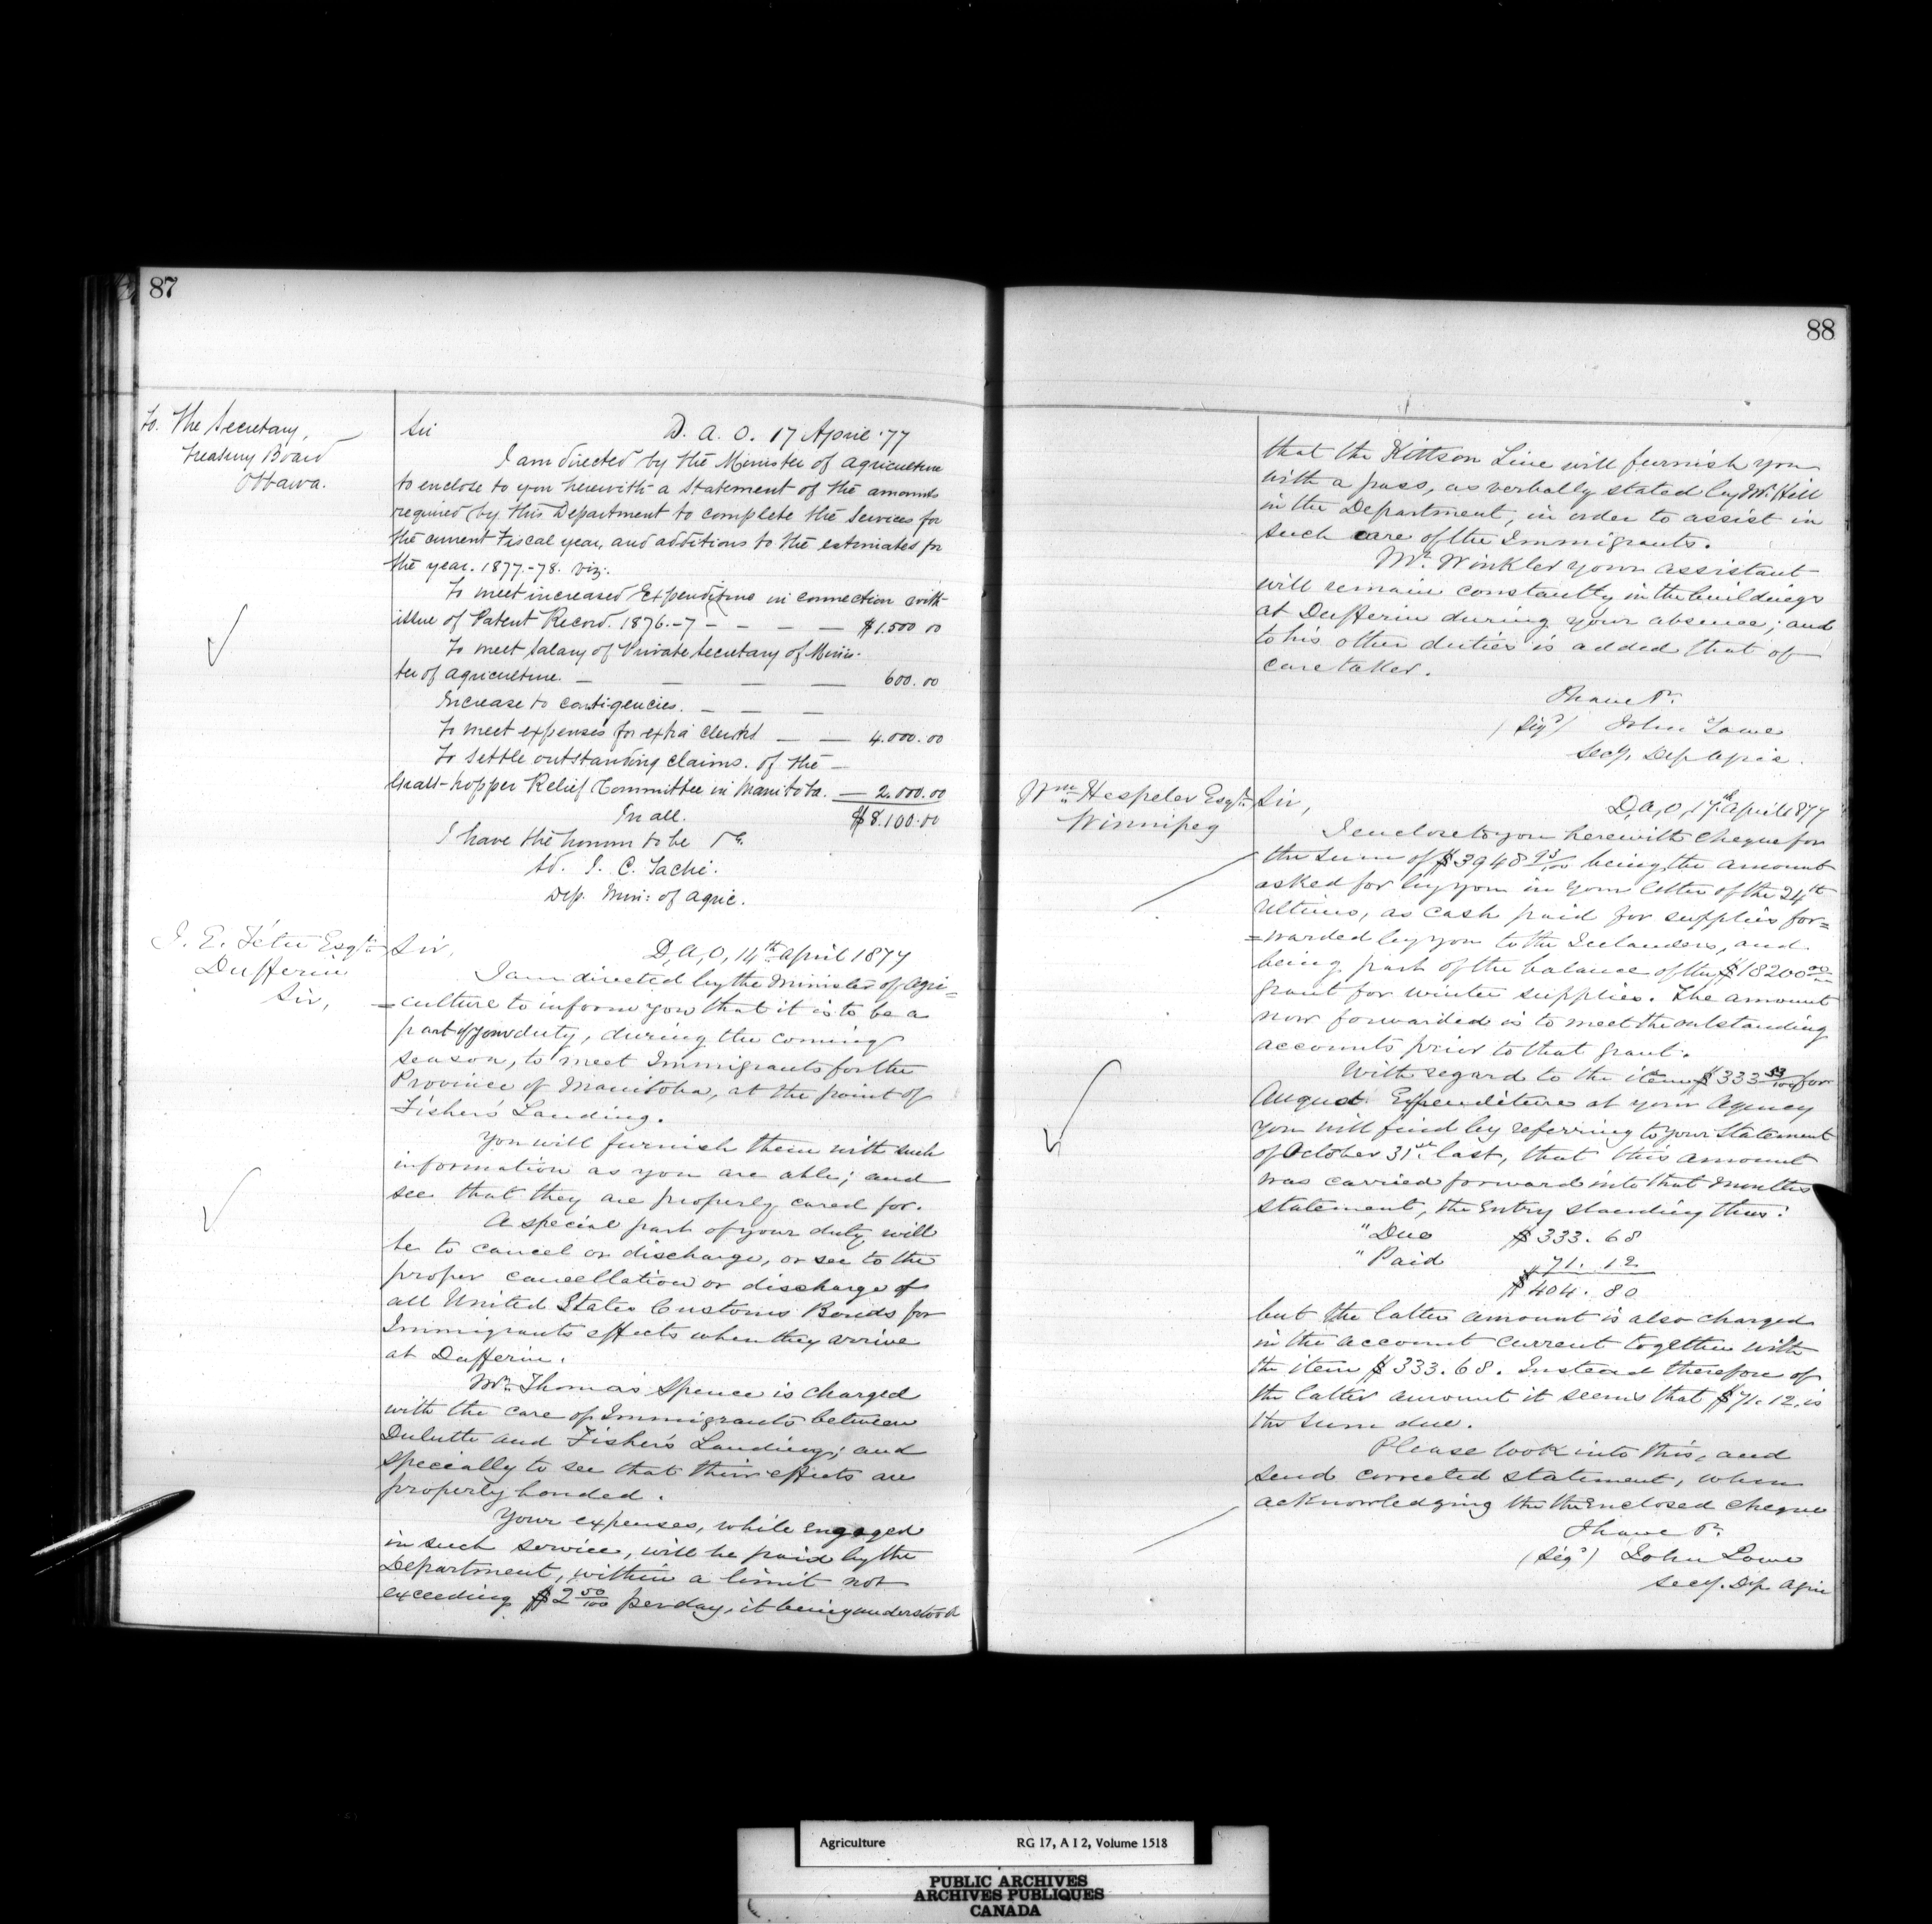 87
To. The Secretary,
Treasury Board
Ottawa.
Sir
D. A. O. 17 April '77
I am directed by the Minister of Agriculture
to enclose to you herewith a Statement of the amounts
required by this Department to complete the Services for
the current Fiscal year, and additions to the estimates for
the year. 1877.-78. viz:
To meet increased Expenditure in connection with
issue of Patent Record. 1876.-7 - - - - $1.500 00
To meet Salary of Private Secretary of Minis-
ter of Agriculture. - - - - 600.00
Increase to contigencies. - - -
To meet expenses for extra clerks - - 4.000.00
To settle outstanding claims. of the -
Grass-hopper Relief Committee in Manitoba. - 2.000.00
In all. $8.100.00
I have the honor to be &c.
Sd. J. C. Taché.
Dep. Min: of Agric.
J. E. Têtu Esqre
Dufferin
Sir,
Sir,
D, A, O, 14th April 1877
I am directed by the Minister of Agri=
=culture to inform you that it is to be a
part of your duty, during the coming
season, to meet Immigrants for the
Province of Manitoba, at the point of
Fisher's Landing.
You will furnish them with such
information as you are able; and
see that they are properly cared for.
A special part of your duty will
be to cancel or discharge, or see to the
proper cancellation or discharge of
all United States Customs Bonds for
Immigrants effects when they arrive
at Dufferin.
Mr. Thomas Spence is charged
with the care of Immigrants between
Duluth and Fisher's Landing; and
specially to see that their effects are
properly bonded.
Your expenses, while engaged
in such service, will be paid by the
Department, within a limit not
exceeding $2 50/100 per day, it being understood
88
that the Kittson Line will furnish you
with a pass, as verbally stated by Mr. Hill
in the Department, in order to assist in
such care of the Immigrants.
Mr. Winkler your assistant
will remain constantly in the buildings
at Dufferin during your absence; and
to his other duties is added that of
caretaker.
I have &c.
(Sigd) John Lowe
Secy. Dep Agric.
Wm Hespeler Esqre
Winnipeg
Sir,
D, A, O, 17th April 1877
I enclose to you herewith Cheque for
the sum of $3948 93/100 being the amount
asked for by you in your letter of the 24th
Ultimo, as cash paid for supplies for=
=warded by you to the Icelanders, and
being part of the balance of the $18200 00
grant for winter supplies. The amount
now forwarded is to meet the outstanding
accounts prior to that grant.
With regard to the item $333 for
August Expenditure at your Agency
you will find by referring to your Statement
of October 31st last, that this amount
was carried forward into that months
statement, the Entry standing thus:
" Due $333.68
" Paid " 71.12
$404.80
but the latter amount is also charged
in the account current together with
the item $333.68. Instead therefore of
the latter amount it seems that $71.12, is
the sum due.
Please look into this, and
send corrected statement, when
acknowledging the the Enclosed cheque
I have &c.
(Sigd) John Lowe
Secy. Dep. Agric
Agriculture RG 17, A I 2, Volume 1518
PUBLIC ARCHIVES
ARCHIVES PUBLIQUES
CANADA